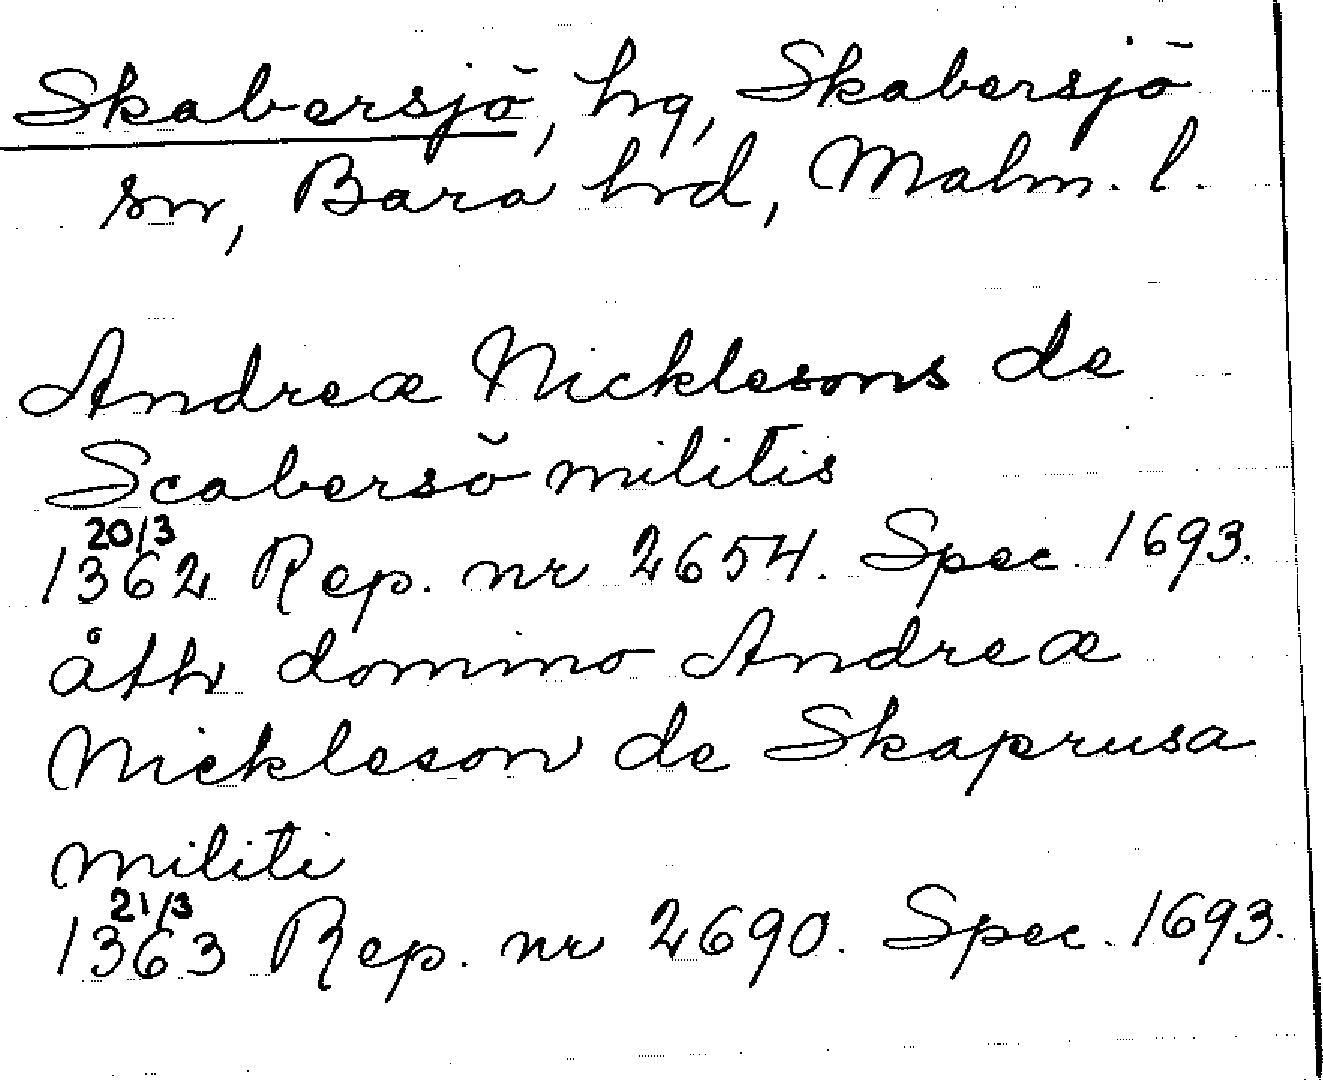 Skabersjö, hg, Skabersjö
sn, Bara hrd, Malm. l.
Andreæ Nicklesons de
Scabersö militis
20/3
1362 Rep. nr 2654. Spec. 1693.
åth domino Andreæ
Nickleson de Skaprusa
militi
21/3
1363 Rep. nr 2690. Spec. 1693.